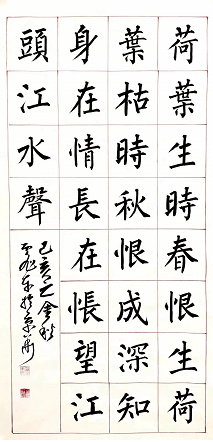 荷葉生時春恨生荷
葉枯時秋恨成深知
身在情長在悵望江
頭江水聲
己亥之金秋